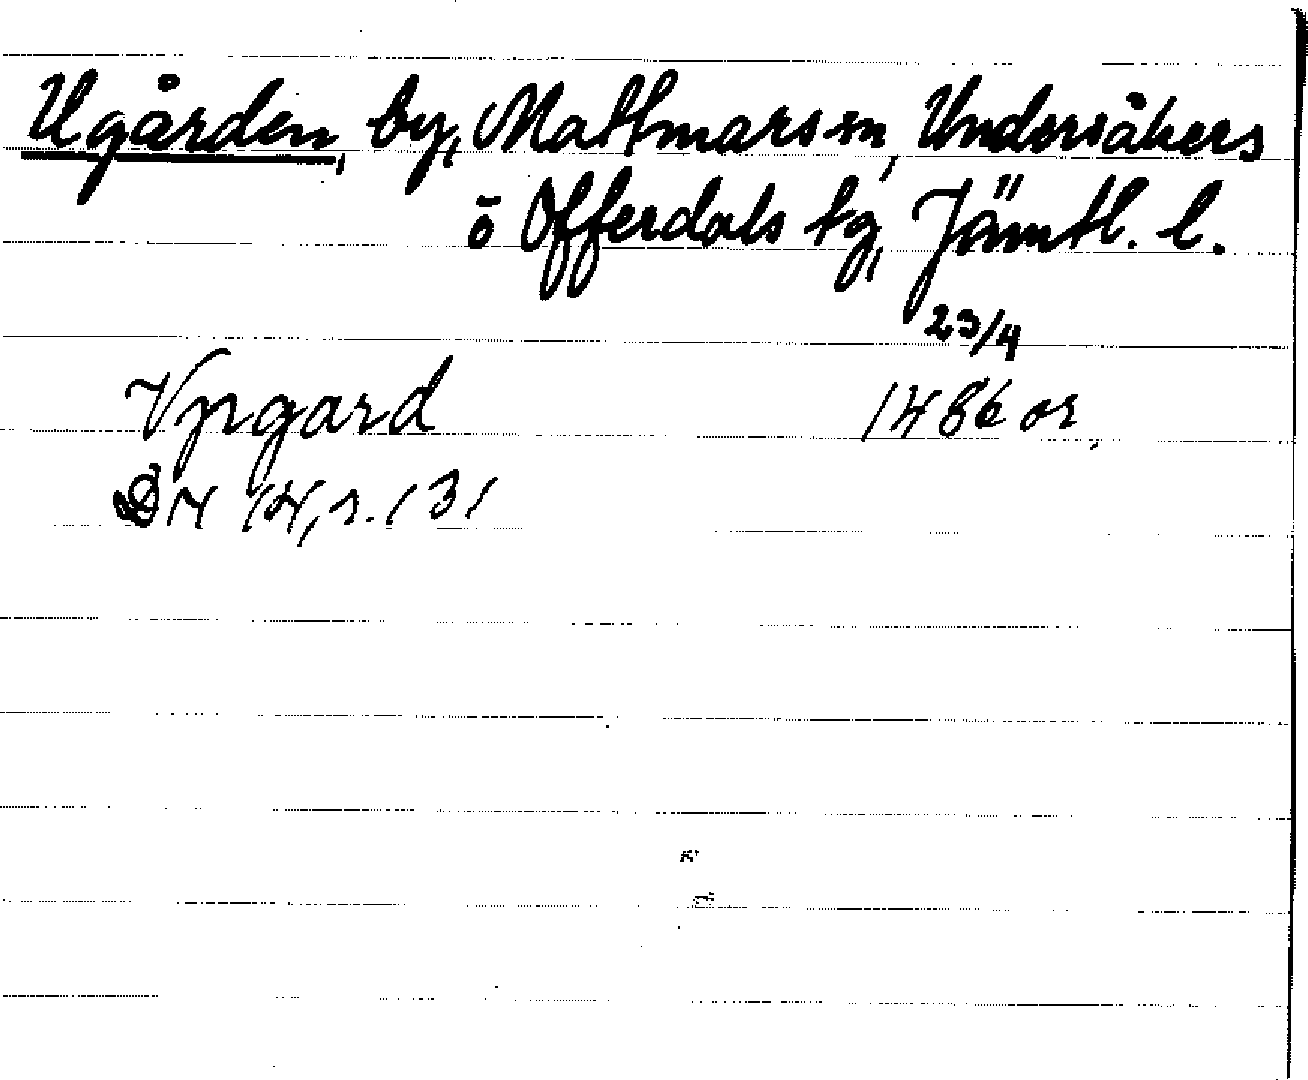 Ugården, by, Mattmars sn, Undersåkers
o Offerdals tg, Jämtl. l.
23/4
Vpgard 1486 or.
DN 14, s. 131